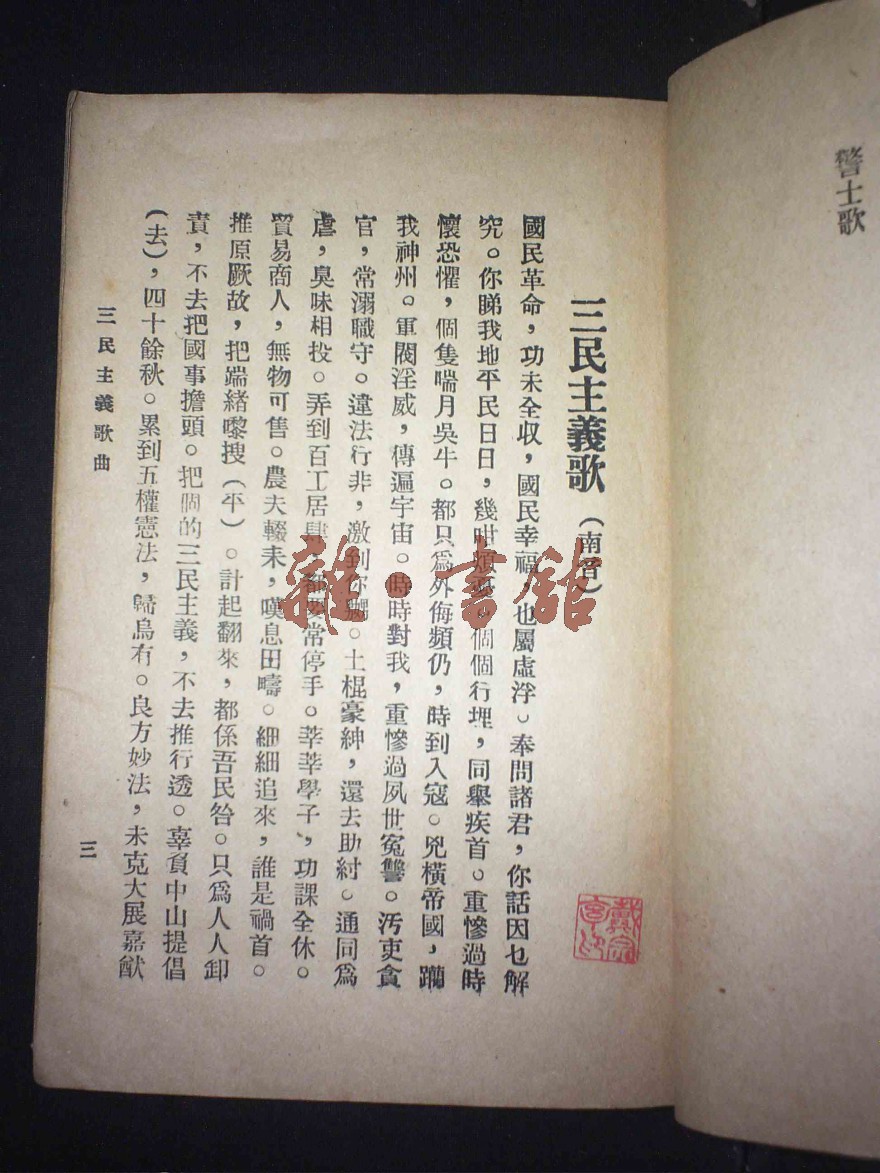 警士歌
三民主義歌（南音）
國民革命，功未全収，國民幸福，也屬虛浮。奉問諸君，你話因乜解
究。你睇我地平民日日，幾咁煩憂。個個行埋，同舉疾首。重慘過時
懷恐懼，個隻喘月吳牛。都只爲外侮頻仍，時到入寇。兇橫帝國，躪
我神州。軍閥淫威，傳遍宇宙。時時對我，重慘過夙世冤讐。汚吏貪
官，常溺職守。違法行非，激到你嬲。土棍豪紳，還去助紂。通同爲
虐，臭味相投。弄到百工居肆，都要常停手。莘莘學子，功課全休。
貿易商人，無物可售。農夫輟耒，嘆息田疇。細細追來，誰是禍首。
推原厥故，把端緒嚟搜（平）。計起翻來，都係吾民咎。只爲人人卸
責，不去把國事擔頭。把個的三民主義，不去推行透。辜負中山提倡
（去），四十餘秋。累到五權憲法，歸烏有。良方妙法，未克大展嘉猷
三民主義歌曲
三
雜·書館